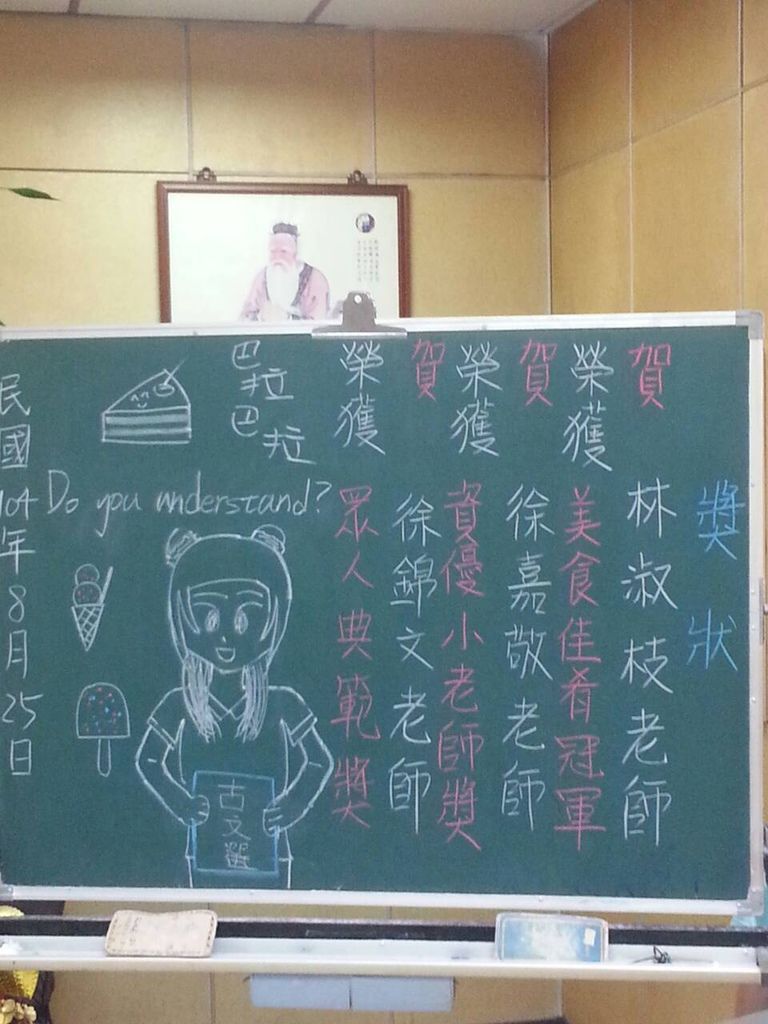 獎狀
賀 林淑枝老師
榮獲 美食佳肴冠軍
賀 徐嘉敬老師
榮獲 資優小老師獎
賀 徐錦文老師
榮獲 眾人典範獎
巴拉巴拉
Do you understand?
古文選
民國104年8月25日